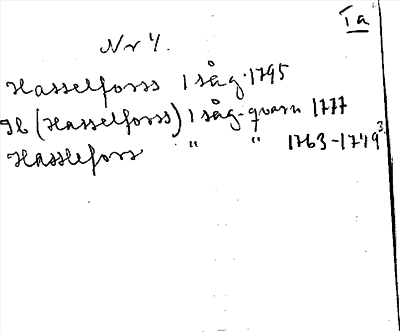 Ia
Nr 4.
Hasselforss 1 såg. 1795
(Hasselforss) 1 såg-qvarn 1777
Hasslefors " " 1763-1749 3.